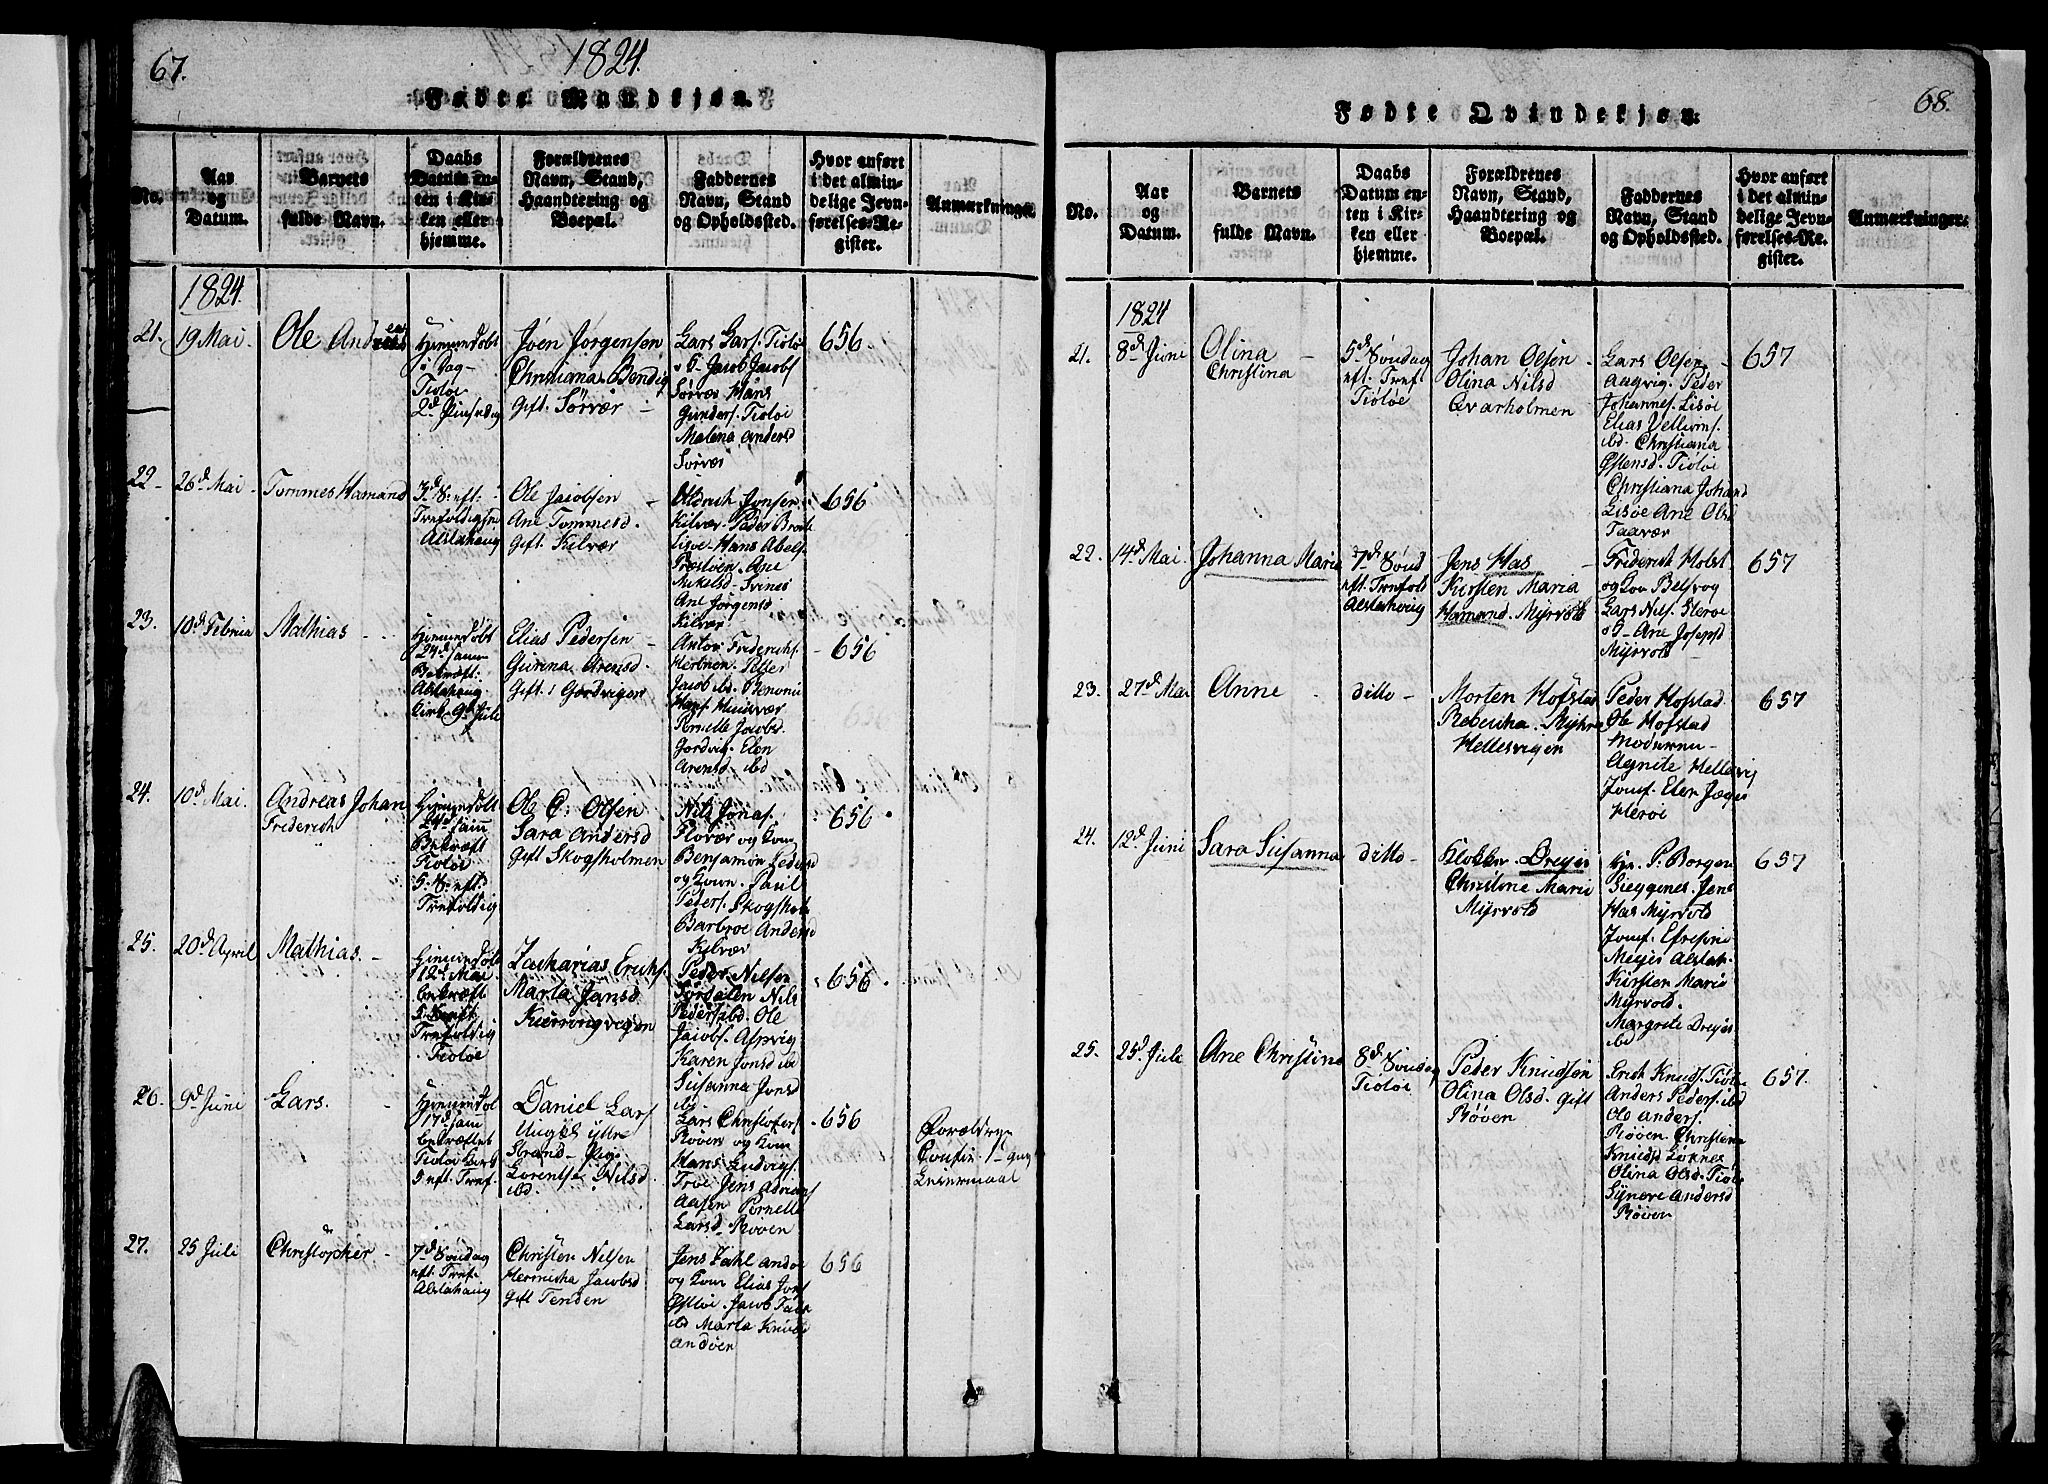 67.
1824.
Fødte Mandkjøn.
No.
Aar
og
Datum.
Barnets
fulde Navn.
Daabs
Datum en-
ten i Kir-
ken eller
hjemme.
Forældrenes
Navn, Stand,
Haandtering og
Boepæl.
Faddernes
Navn, Stand
og Opholdssted.
Hvor anført
i det almin-
delige Jevn-
førelses-Re-
gister.
Anmærkninger.
1824.
21. 19 Mai
Ole Andreas
Hiemmedøbt
i Dag
Tioløe
2d Pinsedag
Joen Jørgensen
Christiana Bendig
Gift. Sørvær
Lars Lars. Tioløe
Jacob Jacobs
Sørvær Hans
Gunders. Tioløe
Malena Andersd
Sørvær
656
22 26d Mai
Tommes Hamand
3d S. eft:
Trefoldighed
Alstahaug
Ole Jacobsen
Ane Tommesd.
Gift. Kilvær
Jonsen
Kilvær. Peder
Hans Abels.
Ane
Mikelsd
Ane Jørgensd
Kilvær
656
23. 10d Februa
Mathias
Hiemmedøbt
24d sam
Bekræft:
Alstahaug
Kirke 9d Juli
Elias Pedersen
Gunna Arensd.
Gift
Anton Friderichs.
Petter
Jacob ibd. Benoni
Pernille Jacobsd
Elen
Arensd ibd
656
24. 10d Mai.
Andreas Johan
Friderich
Hiemmedøbt
24d sam
Bekræft
Tioløe
5. S. eft.
Trefoldig
Ole C. Olsen
Sara Andersd
Gift Skogsholmen
Nils Jonas.
Flovær og Kone
Benjamin Peders
og Kone. Paul
Peders. Skogsholm
Barbroe Andersd
Kilvær
656
25. 20d April
Mathias.
Hiemmedøbt
12d Mai
bekræft
5 S. eft
Trefoldig
Tioløe
Zacharias Erichs.
Marta Jansd
Kierringvigen
Peder Nilsen
Sørdalen Nils
Peders ibd. Ole
Jacobs. Aspvig
Karen Jonsd ibd
Susanna Jonsd
ibd
656
26. 9d Juni
Lars.
Hiemmedøbt
17d sam
bekræftet
Tioløe
5 eft. Tref.
Daniel Lars
Ungk
Strand Pige
Lorentse Nilsd
ibd.
Lars Christofers
Røøen og Kone
Hans Ludvigs.
Jens Adrians
Aasen Pernelle
Larsd. Røøen
656
Forældrene
1ste gang
Leiermaal
27. 25 Juli
Christopher
7d Søndag
eft. Tref.
Alstahaug
Christen Nilsen
Hermicha Jacobsd
Gift Tenden
Jens Dahl Andøe
og Kone Elias Jons
Østløe. Jacob
ibd Marta Knuds
Andøen
656
68.
Fødte Qvindekjøn.
No.
Aar
og
Datum.
Barnets
fulde Navn.
Daabs
Datum en-
ten i Kir-
ken eller
hjemme.
Forældrenes
Navn, Stand,
Haandtering og
Boepæl.
Faddernes
Navn, Stand
og Opholdsted.
Hvor anført
i det almin-
delige Jevn-
førelses-Re-
gister.
Anmærkninger.
1824
21. 8d Juni
Olina
Christina
5d Søndag
eft. Tref
Tioløe
Johan Olsen
Olina Nilsd
Qvarholmen
Lars Olsen
Aagvig. Peder
Johannes. Lisøe
Elias Vellums.
ibd. Christiana
Østensd. Tioløe
Christiana Johand
Lisøe Ane Olsd
Taavær
657
22. 14d Mai
Johanna Marie
7d Sønd
eft. Trefold
Alstahaug
Jens Has
Kirsten Maria
Hamand. Myrvold
Friderich Holst
og Kone Belsvog
Lars Nils. Herøe
Ane Josepsd
Myrvold
657
23. 27d Mai
Anne
ditto
Morten Hofstad
Rebecha
Hellesvigen
Peder Hofstad
Ole Hofstad
Agnete Hellesvig
Jomf. Elen
Herøe
657
24. 12d Juni
Sara Susanna
ditto
Klokker Dreyer
Christine Marie
Myrvold
Hr. P. Borgen
Jens
Has Myrvold
Jomf.
Meyer Alstah.
Kirsten Marie
Myrvold.
Margrete Dreyer
ibd
657
25. 25d Juli
Ane Christine
8d Søndag
Tioløe
Peder Knudsen
Olina Olsd. gift
Røøen
Erich Knuds. Tioløe
Anders Peders. ibd
Ole Anders.
Røøen. Christine
Knudsd
Olina Olsd. Tioløe
Synere Andersd
Røøen
657.